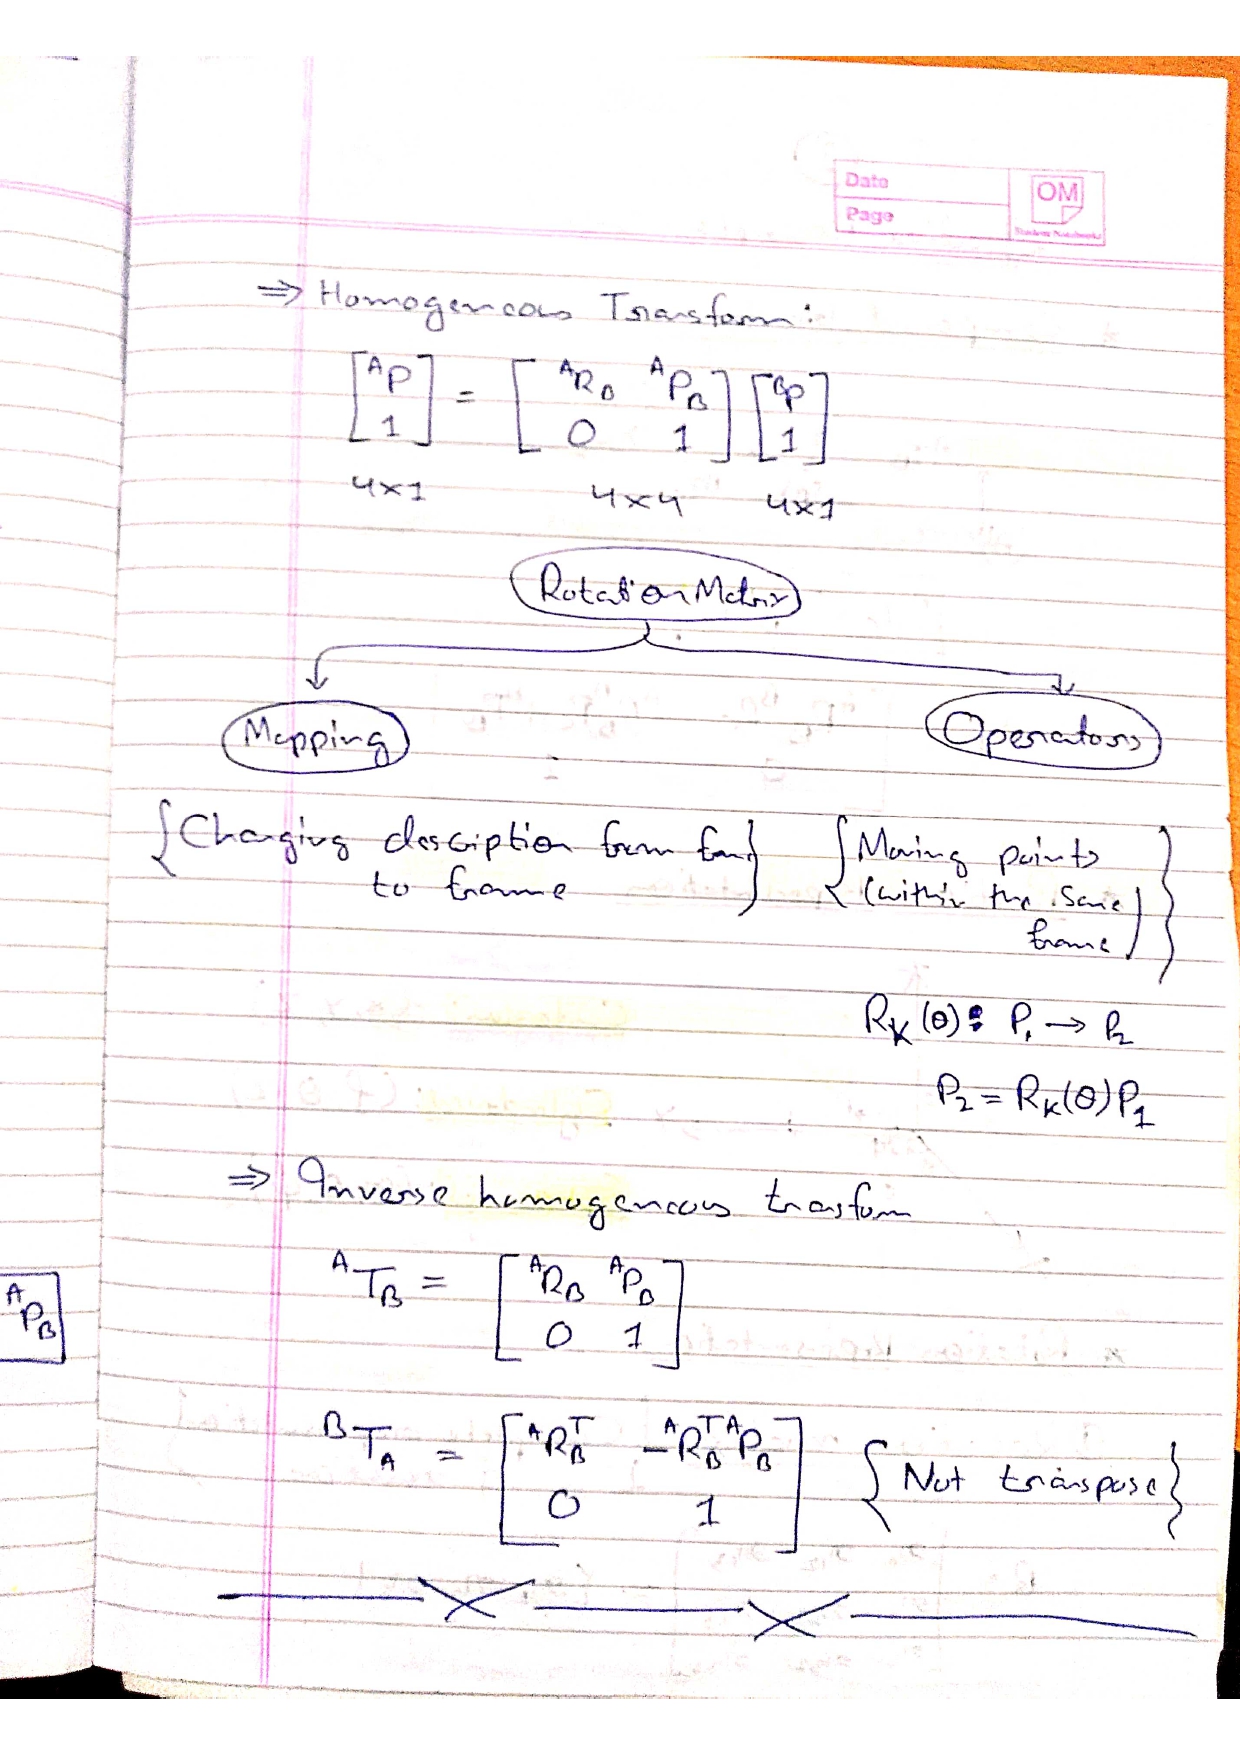 Date
Page
OM
⇒ Homogeneous Transform:
[ᴬP; 1] = [ᴬR_B ᴬP_B; 0 1] [ᴮP; 1]
4×1 4×4 4×1
Rotation Matrix
Mapping Operators
{Changing description from fram} {Moving points
to frame (within the same
frame)}
R_K(θ): P₁ → P₂
P₂ = R_K(θ) P₁
⇒ Inverse homogeneous transform
ᴬT_B = [ᴬR_B ᴬP_B; 0 1]
ᴬP_B
ᴮT_A = [ᴬR_Bᵀ -ᴬR_Bᵀ ᴬP_B; 0 1] {Not transpose}